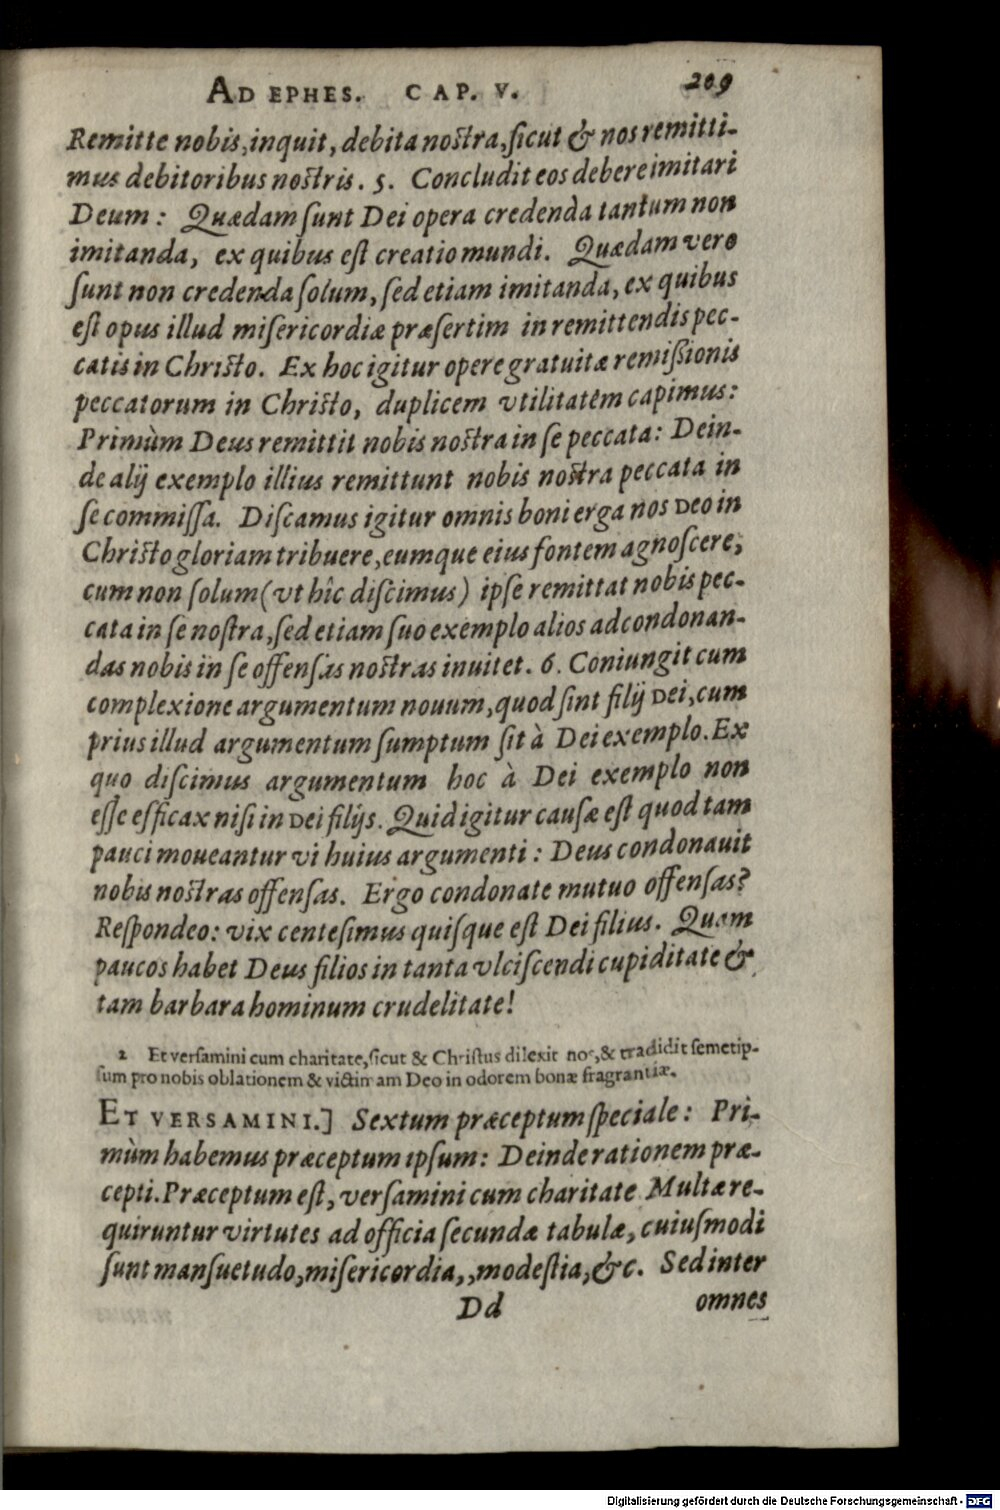 AD EPHES. CAP. V. 209
Remitte nobis, inquit, debita nostra, sicut & nos remitti-
mus debitoribus nostris. 5. Concludit eos debere imitari
Deum: Quædam sunt Dei opera credenda tantum non
imitanda, ex quibus est creatio mundi. Quædam vero
sunt non credenda solum, sed etiam imitanda, ex quibus
est opus illud misericordiæ præsertim in remittendis pec-
catis in Christo. Ex hoc igitur opere gratuitæ remißionis
peccatorum in Christo, duplicem vtilitatem capimus:
Primùm Deus remittit nobis nostra in se peccata: Dein-
de alij exemplo illius remittunt nobis nostra peccata in
se commissa. Discamus igitur omnis boni erga nos Deo in
Christo gloriam tribuere, eumque eius fontem agnoscere,
cum non solum (vt hîc discimus) ipse remittat nobis pec-
cata in se nostra, sed etiam suo exemplo alios ad condonan-
das nobis in se offensas nostras inuitet. 6. Coniungit cum
complexione argumentum nouum, quod sint filij Dei, cum
prius illud argumentum sumptum sit à Dei exemplo. Ex
quo discimus argumentum hoc à Dei exemplo non
esse efficax nisi in Dei filijs. Quid igitur causæ est quod tam
pauci moueantur vi huius argumenti: Deus condonauit
nobis nostras offensas. Ergo condonate mutuo offensas?
Respondeo: vix centesimus quisque est Dei filius. Quam
paucos habet Deus filios in tanta vlciscendi cupiditate &
tam barbara hominum crudelitate!
2 Et versamini cum charitate, sicut & Christus dilexit nos, & tradidit semetip-
sum pro nobis oblationem & victimam Deo in odorem bonæ fragrantiæ.
ET VERSAMINI.] Sextum præceptum speciale: Pri-
mùm habemus præceptum ipsum: Deinde rationem præ-
cepti. Præceptum est, versamini cum charitate Multæ re-
quiruntur virtutes ad officia secundæ tabulæ, cuiusmodi
sunt mansuetudo, misericordia,, modestia, &c. Sed inter
Dd omnes
Digitalisierung gefördert durch die Deutsche Forschungsgemeinschaft - DFG